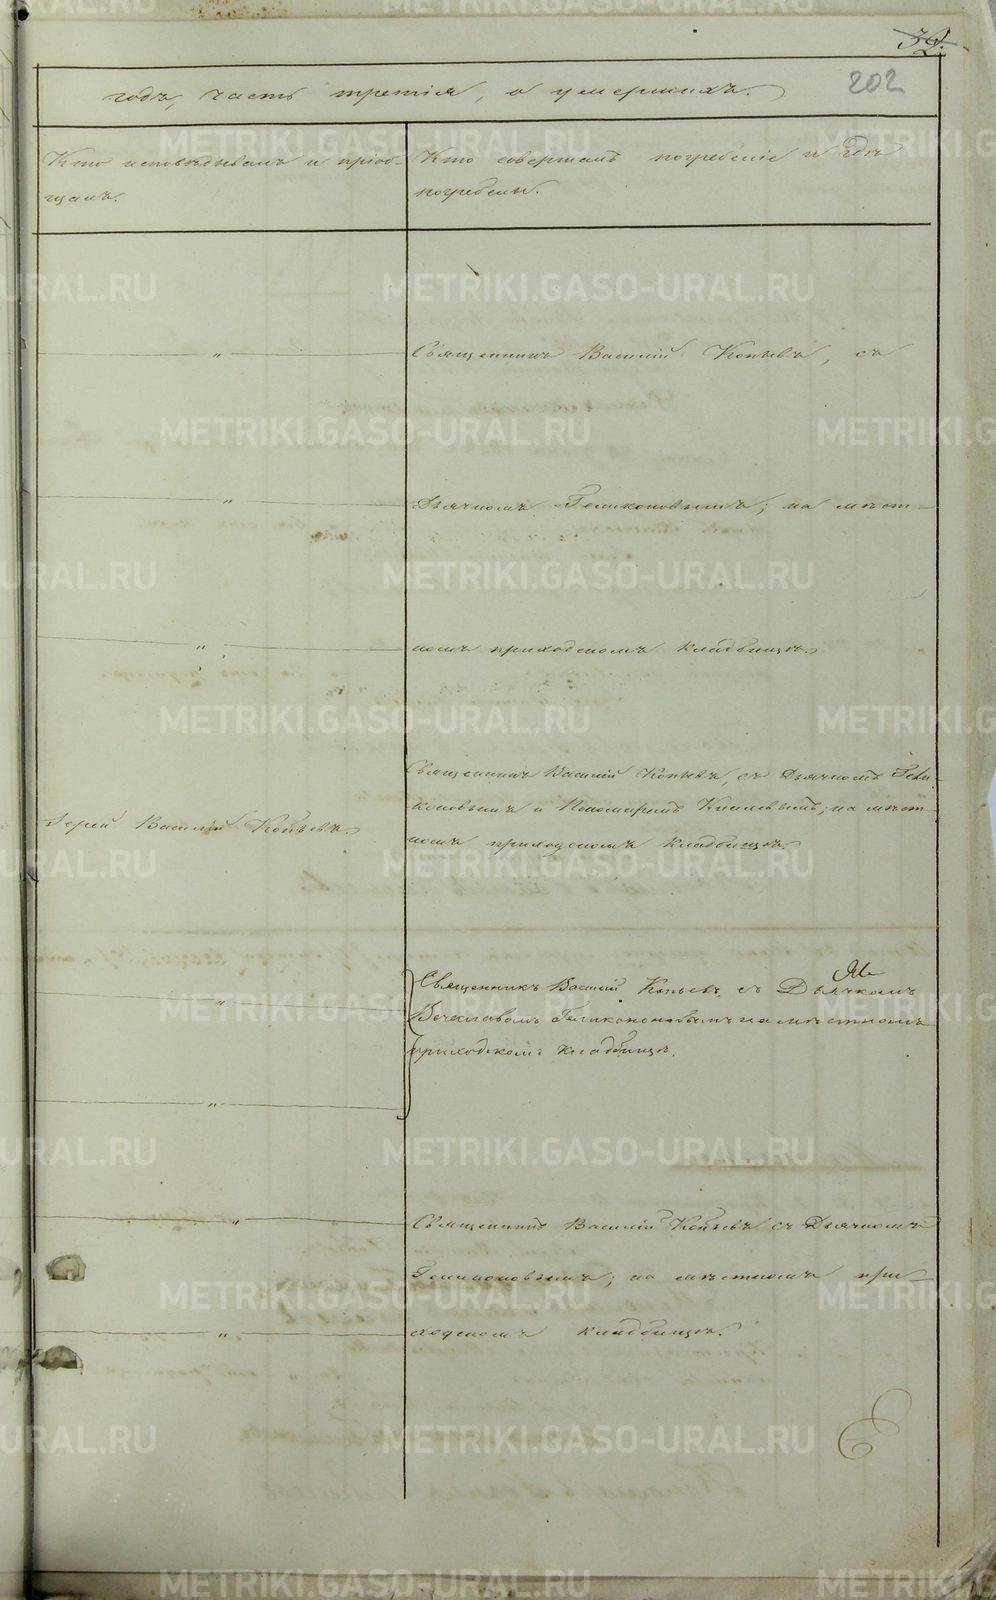 202
годъ, часть третія, о умершихъ.
Кто исповѣдывалъ и пріоб-
щалъ.
Кто совершалъ погребеніе и гдѣ
погребены.
Священникъ Василій Копьевъ, съ
Дьячкомъ Геликоновымъ; на мѣст-
номъ приходскомъ кладбищѣ.
Іерей Василій Копьевъ.
Священникъ Василій Копьевъ, съ Дьячкомъ Гели-
коновымъ и Пономаремъ; на мѣст-
номъ приходскомъ кладбищѣ.
Священникъ Василій Копьевъ, съ Дьячкомъ
Вечеславомъ Геликоновымъ на мѣстномъ
приходскомъ кладбищѣ.
Священникъ Василій Копьевъ съ Дьячкомъ
Геликоновымъ; на мѣстномъ при-
ходскомъ кладбищѣ.
METRIKI.GASO-URAL.RU